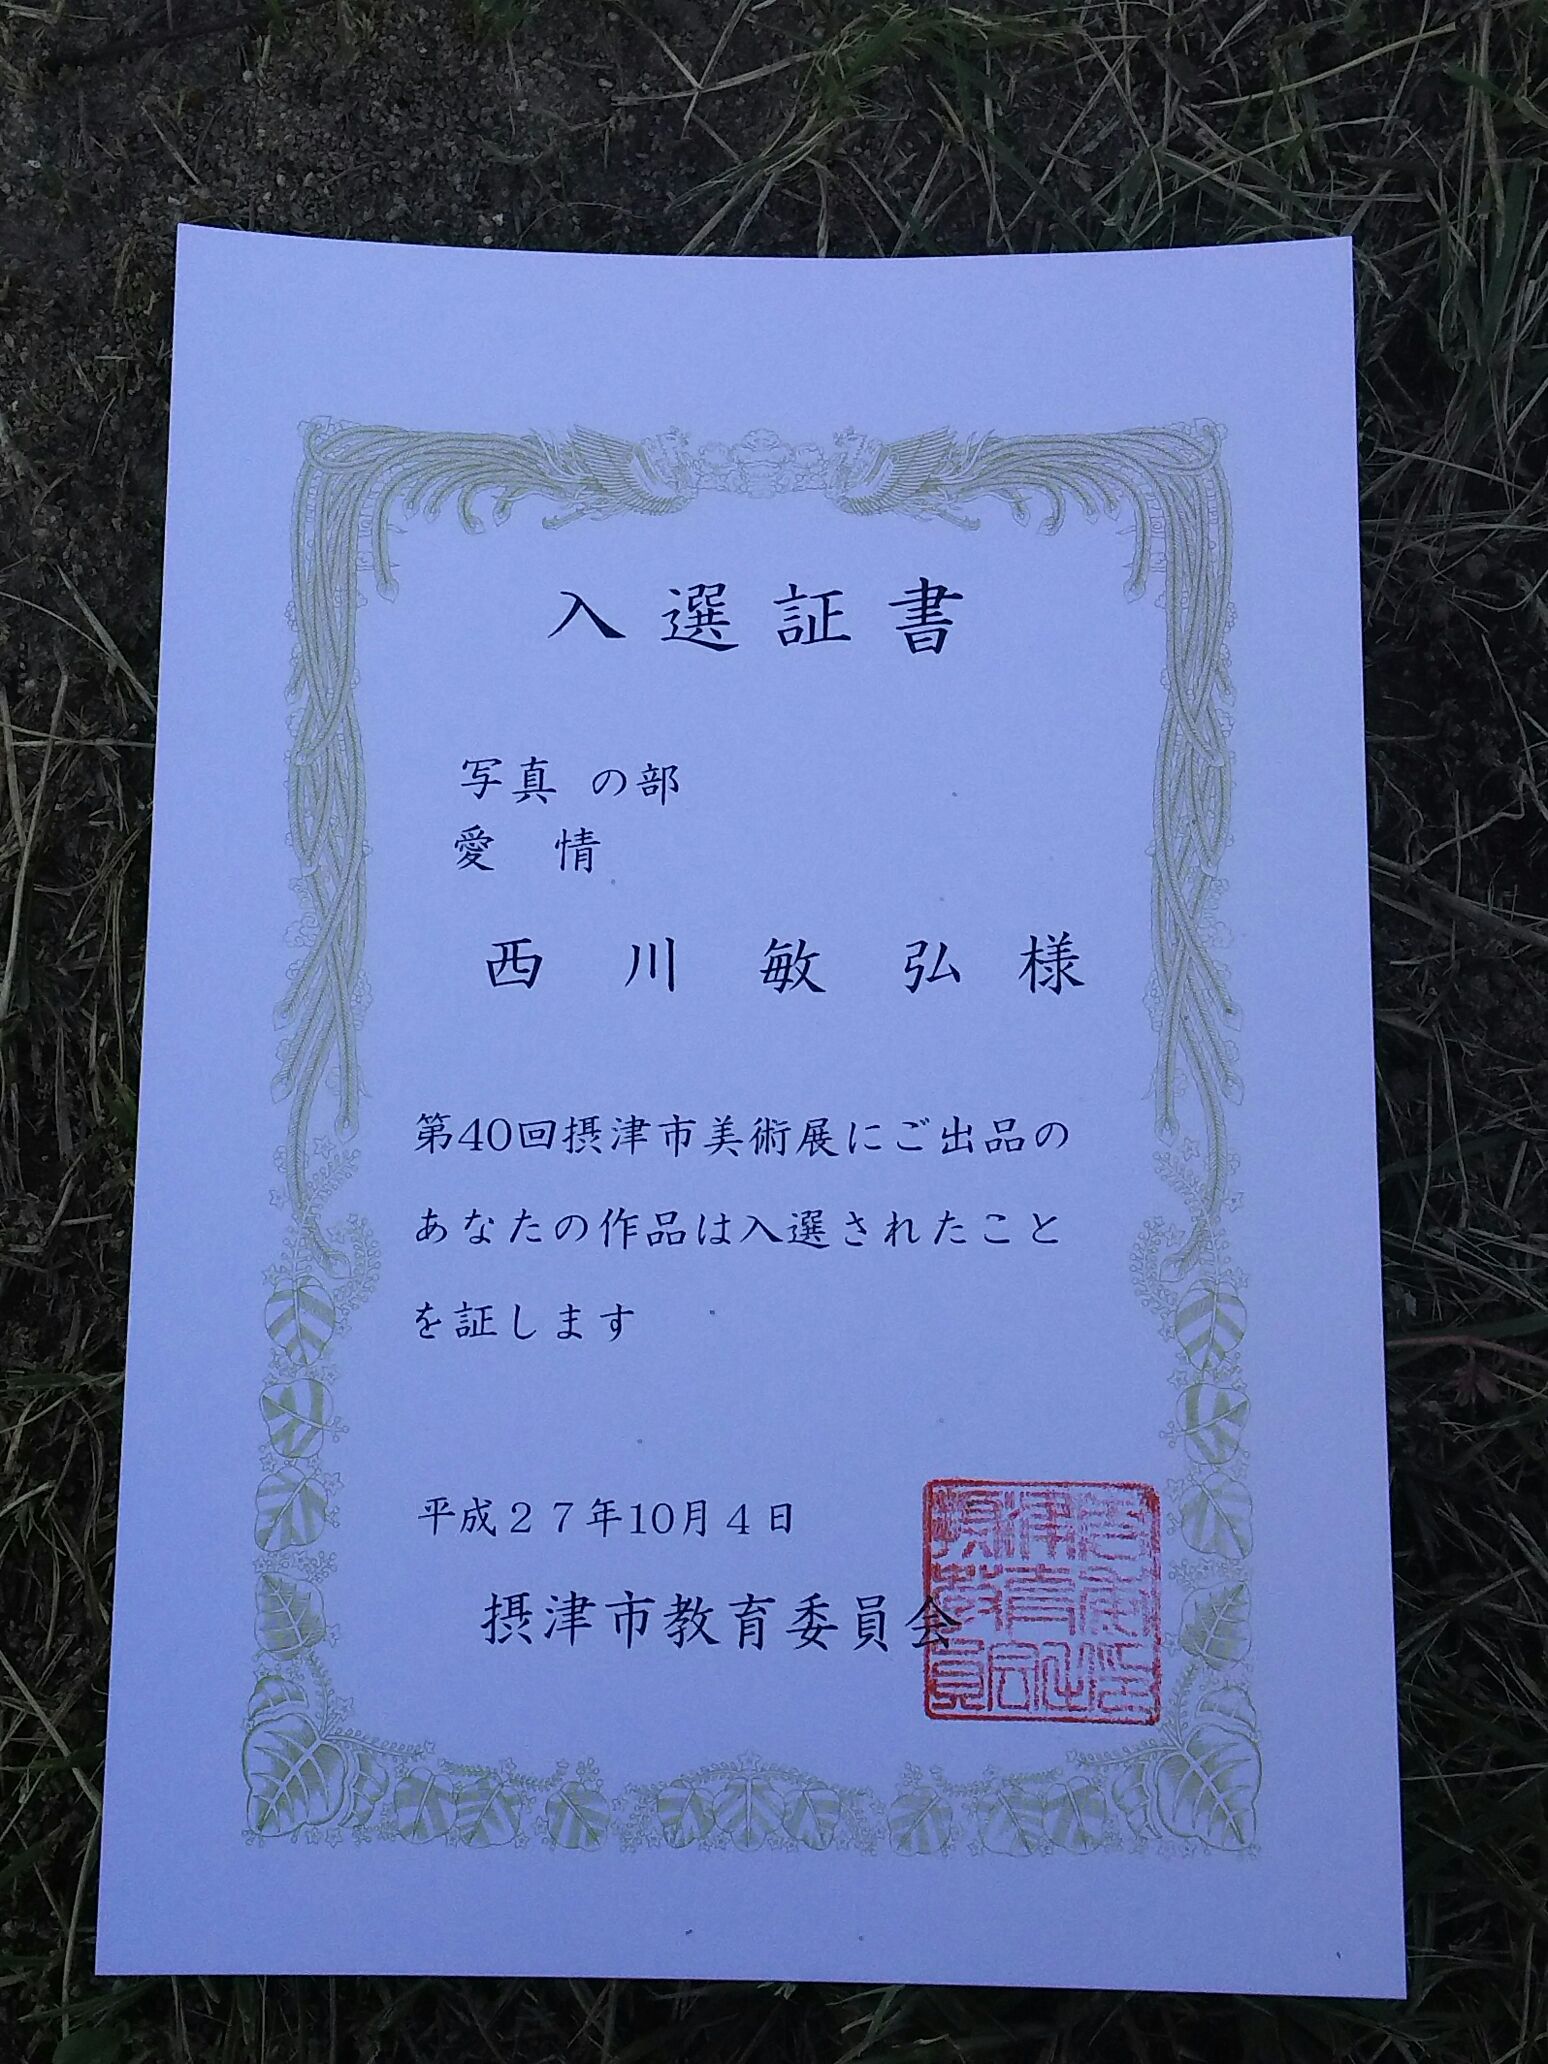 入選証書
写真 の部
愛 情
西 川 敏 弘 様
第40回摂津市美術展にご出品の
あなたの作品は入選されたこと
を証します
平成27年10月4日
摂津市教育委員会